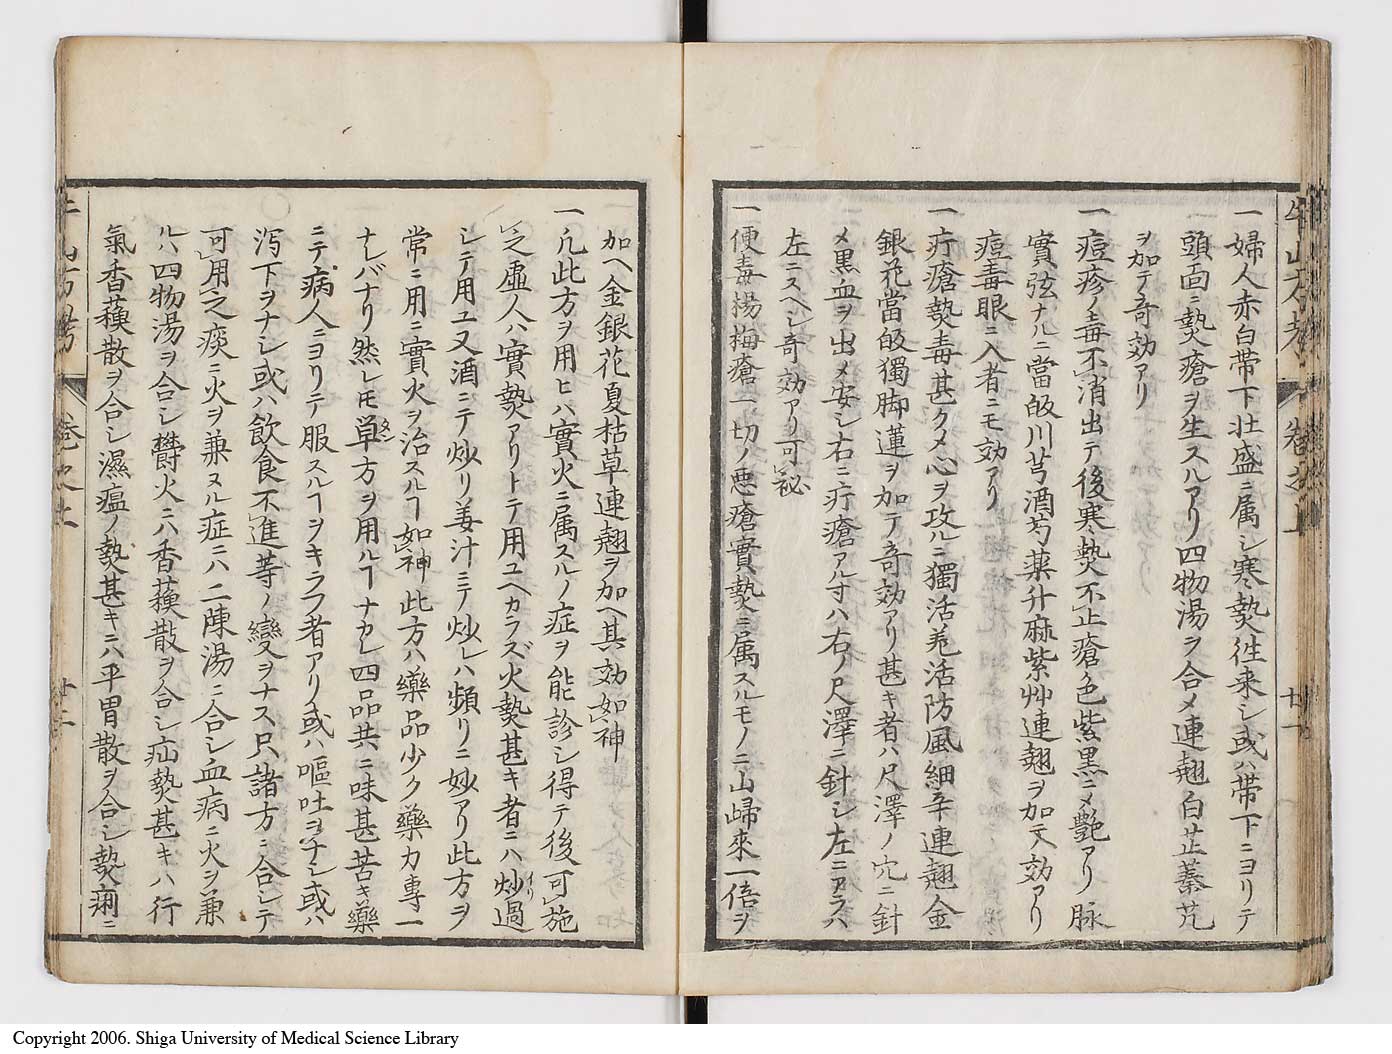 一婦人赤白帯下壮盛ニ属シ寒熱往来シ或ハ帯下ニヨリテ
頭面ニ熱瘡ヲ生スルアリ四物湯ヲ合メ連翹白芷蓁艽
ヲ加テ奇効アリ
一痘疹ノ毒不消出テ後寒熱不止瘡色紫黒ニメ艶アリ脉
實弦ナルニ當皈川芎酒芍薬升麻紫艸連翹ヲ加テ大効アリ
痘毒眼ニ入者ニモ効アリ
一疔瘡熱毒甚クメ心ヲ攻ルニ獨活羌活防風細辛連翹金
銀花當皈獨脚蓮ヲ加テ奇効アリ甚キ者ハ尺澤ノ穴ニ針
メ黒血ヲ出メ安シ右ニ疔瘡アル寸ハ右ノ尺澤ニ針シ左ニアラハ
左ニスヘシ奇効アリ可秘
一便毒楊梅瘡一切ノ悪瘡實熱ニ属スルモノニ山歸來一倍ヲ
牛山方考 巻之上 廿一
加ヘ金銀花夏枯草連翹ヲ加ヘ其効如神
一凡此方ヲ用ヒハ實火ニ属スルノ症ヲ能診シ得テ後可施
之虚人ハ實熱アリトテ用ユヘカラズ火熱甚キ者ニハ炒過
シテ用ユ又酒ニテ炒リ姜汁ニテ炒レハ頻リニ妙アリ此方ヲ
常ニ用ニ實火ヲ治スルヿ如神此方ハ藥品少ク藥力專一
ナレバナリ然レ𪜈草方ヲ用ルヿナカレ四品共ニ味甚苦キ藥
ニテ病人ニヨリテ服スルヿヲキラフ者アリ或ハ嘔吐ヲナシ或ハ
瀉下ヲナシ或ハ飲食不進等ノ變ヲナス只諸方ニ合シテ
可用之痰ニ火ヲ兼ヌル症ニハ二陳湯ニ合シ血病ニ火ヲ兼
ルハ四物湯ヲ合シ欝火ニハ香薷散ヲ合シ疝熱甚キハ行
氣香薷散ヲ合シ濕瘟ノ熱甚キニハ平胃散ヲ合シ熱痢ニ
牛山方考 巻之上 廿二
Copyright 2006. Shiga University of Medical Science Library